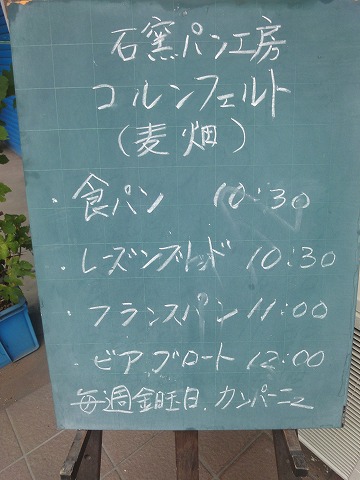 石窯パン工房
コルンフェルト
(麦畑)
・食パン 10:30
・レーズンブレッド 10:30
・フランスパン 11:00
・ビアブロート 12:00
毎週金曜日、カンパーニュ